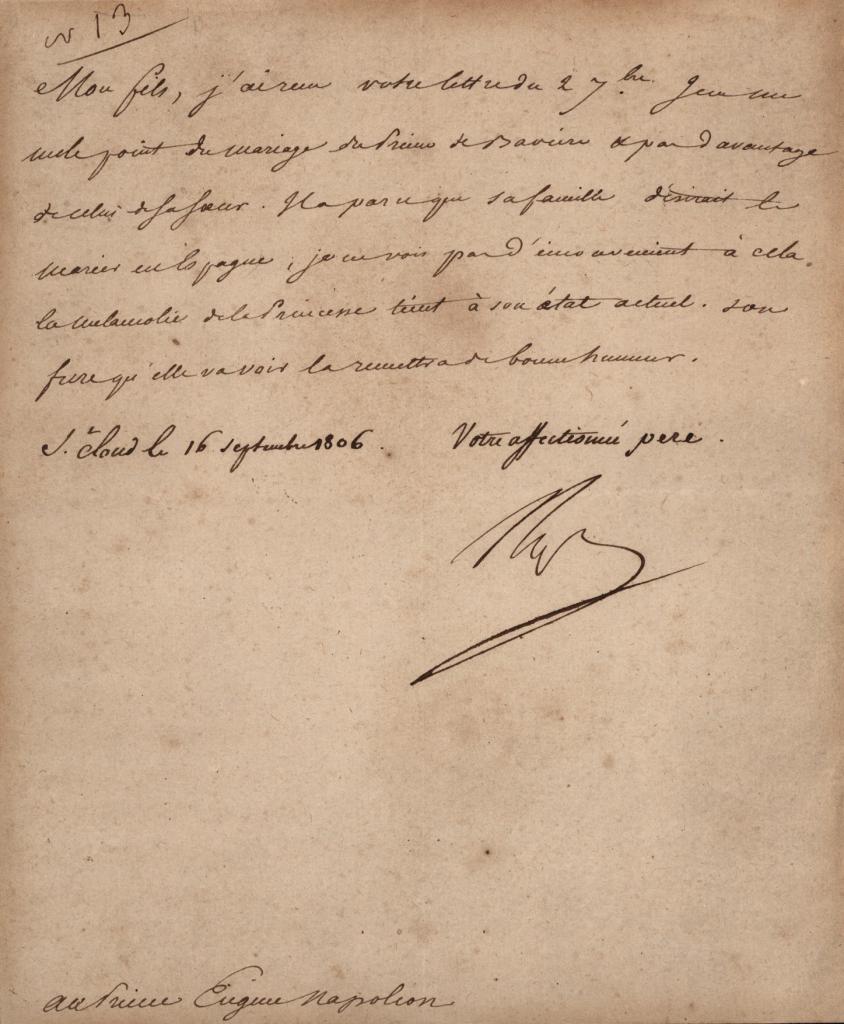 n 13
Mon fils, j'ai reçu votre lettre du 2 7bre. Je ne me
mêle point du mariage du Prince de Bavière & pas d'avantage
de celui de sa sœur. Il a paru que sa famille désirait le
marier en Espagne, je ne vois pas d'inconvenient à cela.
la melancolie de la Princesse tient à son état actuel. son
frere qu'elle va voir la remettra de bonne humeur.
St. Cloud le 16 septembre 1806. Votre affectionné pere.
Nap
au Prince Eugene Napoleon